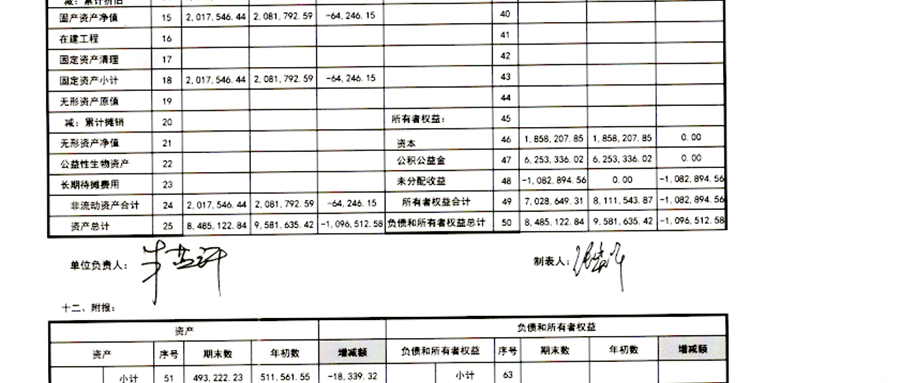 减：累计折旧
固产资产净值 15 2,017,546.44 2,081,792.59 -64,246.15 40
在建工程 16 41
固定资产清理 17 42
固定资产小计 18 2,017,546.44 2,081,792.59 -64,246.15 43
无形资产原值 19 44
减：累计摊销 20 所有者权益： 45
无形资产净值 21 资本 46 1,858,207.85 1,858,207.85 0.00
公益性生物资产 22 公积公益金 47 6,253,336.02 6,253,336.02 0.00
长期待摊费用 23 未分配收益 48 -1,082,894.56 0.00 -1,082,894.56
非流动资产合计 24 2,017,546.44 2,081,792.59 -64,246.15 所有者权益合计 49 7,028,649.31 8,111,543.87 -1,082,894.56
资产总计 25 8,485,122.84 9,581,635.42 -1,096,512.58 负债和所有者权益总计 50 8,485,122.84 9,581,635.42 -1,096,512.58
单位负责人： 制表人：
十二、附报：
资产 负债和所有者权益
资产 序号 期末数 年初数 增减额 负债和所有者权益 序号 期末数 年初数 增减额
小计 51 493,222.23 511,561.55 -18,339.32 小计 63